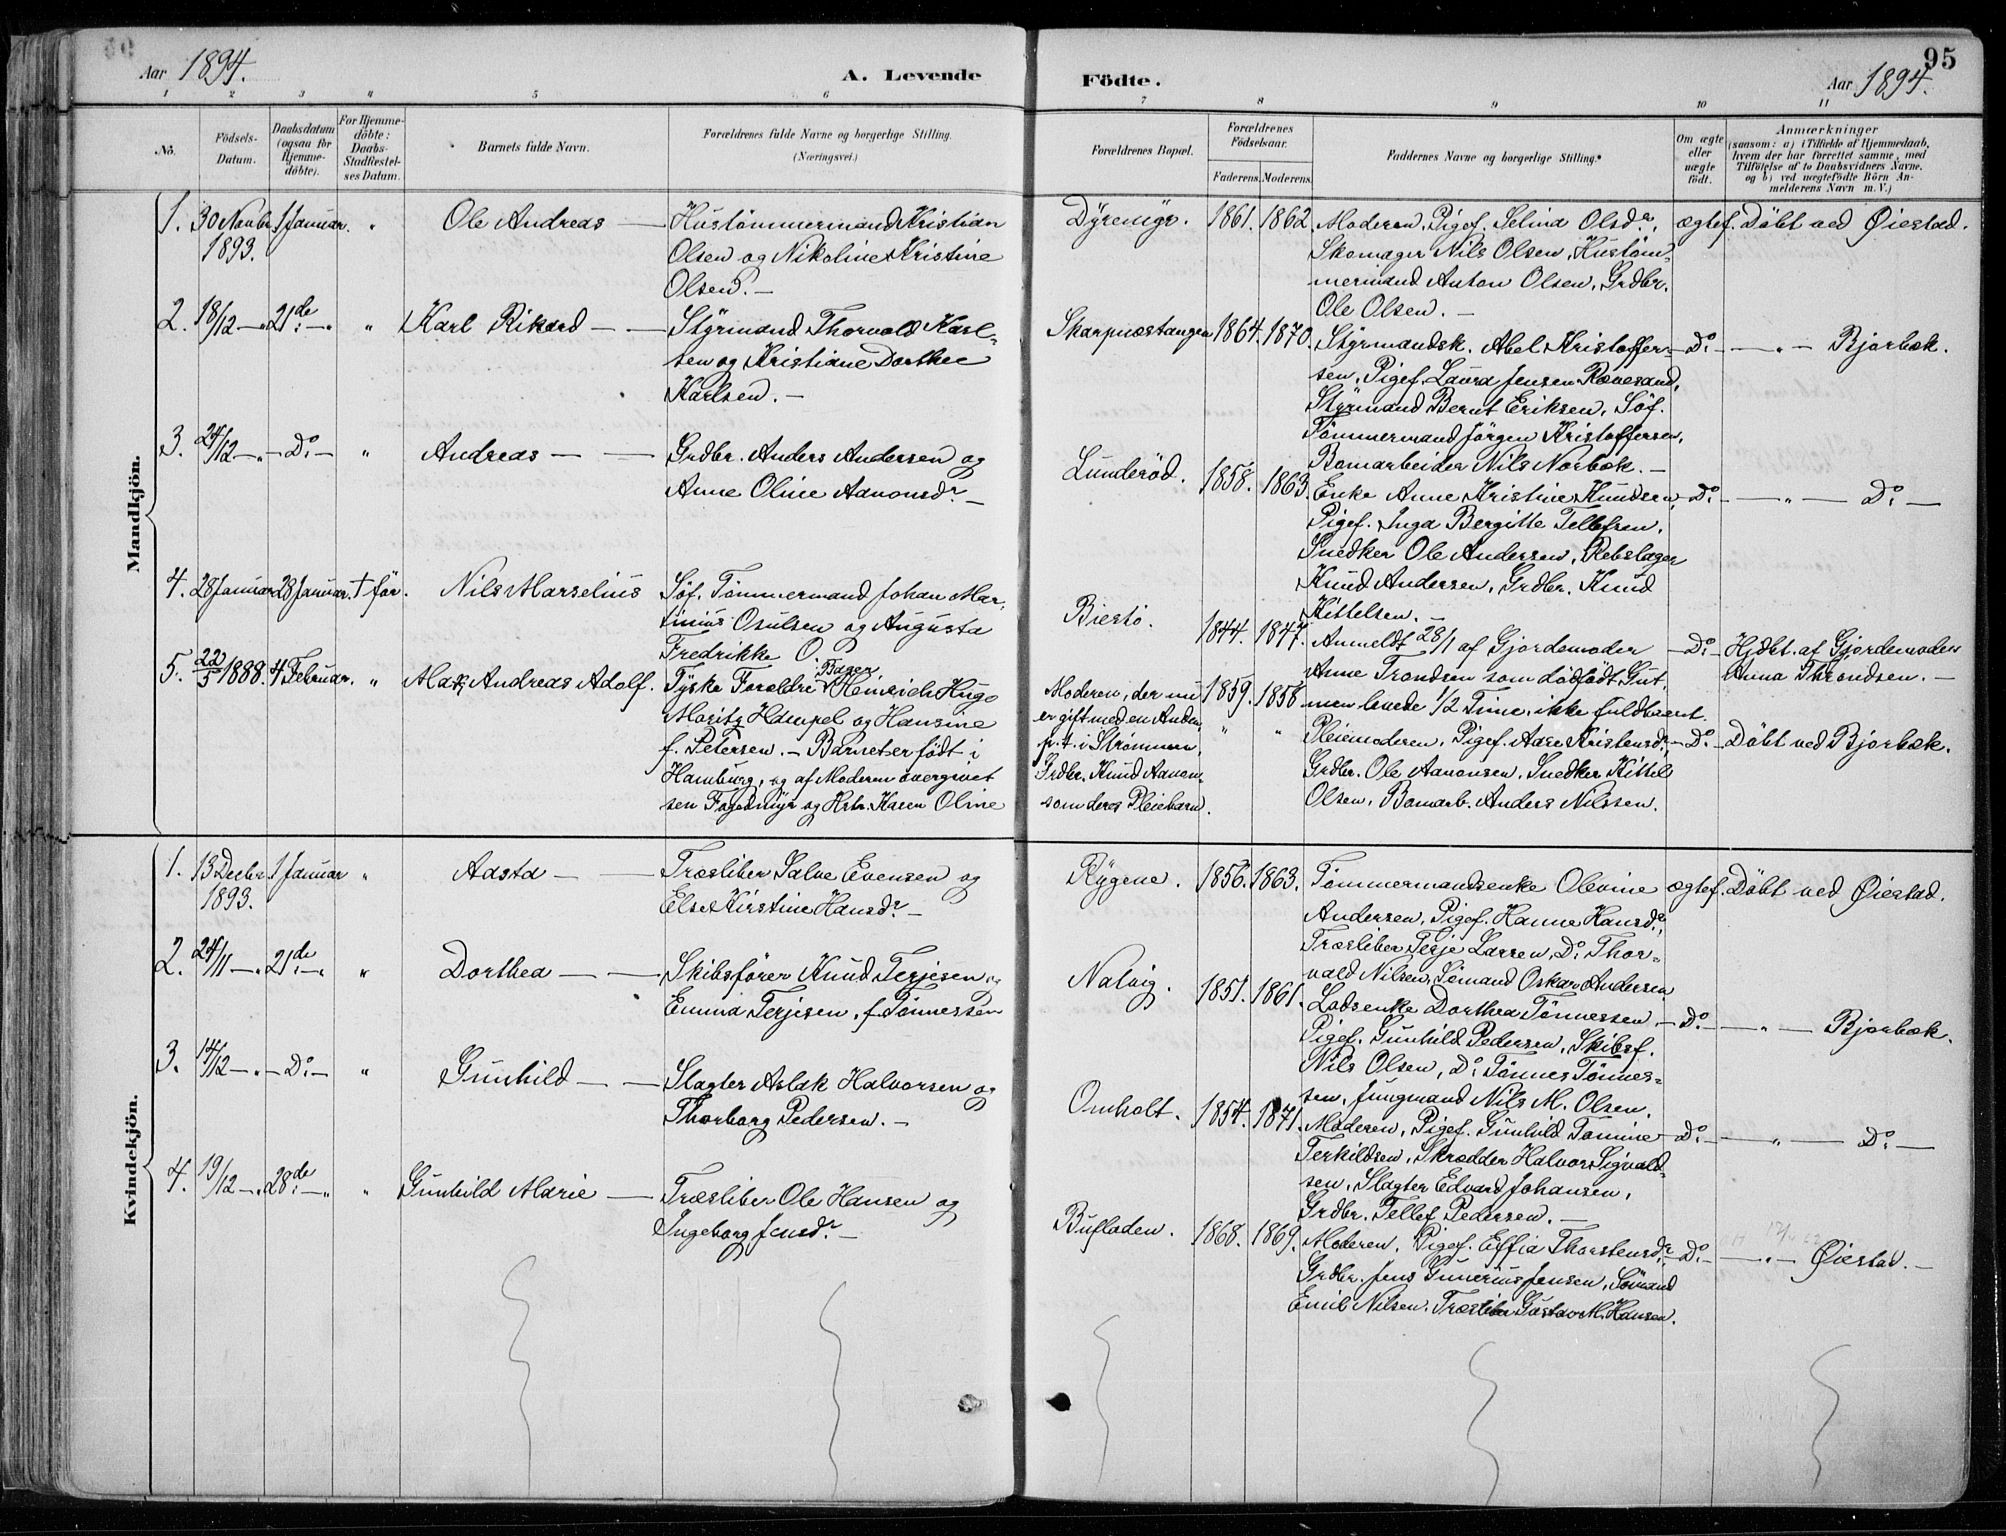 95
Aar 1894. A. Levende Födte. Aar 1894.
1 2 3 4 5 6 7 8 9 10 11
No.
Födsels-
Datum.
Daabsdatum
(ogsaa for
Hjemme-
döbte).
For Hjemme-
döbte:
Daabs-
Stadfestel-
ses Datum.
Barnets fulde Navn.
Forældrenes fulde Navne og borgerlige Stilling.
(Næringsvei.)
Forældrenes Bopæl.
Forældrenes
Födselsaar.
Faderens. Moderens.
Faddernes Navne og borgerlige Stilling.
Om ægte
eller
uægte
födt.
Anmærkninger
(saasom: a) i Tilfælde af Hjemmedaab,
hvem der har forrettet samme, med
Tilföielse af to Daabsvidners Navne.
og b) ved uægtefödte Börn An-
melderens Navn m. V.)
Mandkjön.
1. 30 Novbr 1 Januar. " Ole Andreas —
1893.
Hustømmermand Kristian
Olsen og Nikoline Kristine
Olsen. —
Dyremyr. 1861. 1862.
Moderen, Pigef. Selina Olsdr.,
Skomager Nils Olsen, Hustøm-
mermand Anton Olsen, Grdbr.
Ole Olsen. —
ægtef. Döbt ved Øiestad.
2. 18/12 — " 21de — " " Karl Rikard — —
Styrmand Thorvald Karl-
sen og Kristiane Dorthee
Karlsen. —
Skarpnæstangen 1864. 1870.
Styrmandsk. Abel Kristoffer-
sen, Pigef. Laura Jensen Rævesand,
Styrmand Bernt Eriksen, Söf.
Tömmermand Jörgen Kristoffersen,
Bomarbeider Nils Norbæk. —
— Do — — " — Bjorbæk.
3. 24/12 — " — Do — " Andreas — —
Grdbr. Anders Andersen og
Anne Oline Aanonsdr —
Lunderöd. 1858. 1863.
Enke Anne Kristine Knudsen,
Pigef. Inga Bergitte Tellefsen,
Snedker Ole Andersen, Rebslager
Knud Andersen, Grdbr. Knud
Kittelsen. —
— Do — — " — Do —
4. 28 Januar 28 Januar. † før. Nils Marselius
Söf. Tömmermand Johan Mar-
tinius Osulsen og Augusta
Fredrikke O.
Biestö. 1844. 1847.
Anmeldt 28/1 af Gjordemoder
Anne Trondsen som dödfödt Gut,
men levede 1/2 Time, ikke fuldbaaret.
— Do — Hjdbt. af Gjordemoder
Anna Throndsen. —
5. 22/5 1888. 4 Februar. " Max Andreas Adolf.
Tyske Foreldre: Bager Heinrich Hugo
Moritz Hampel og Hansine
f. Petersen. — Barnet er födt i
Hamburg, og af Moderen overgivet
sen Fogedmyr og Hstr. Karen Oline
Moderen, der nu
er gift med en Anden,
p. t. i Strømmen,
Grdbr. Knud Aanon-
som deres Pleiebarn.
1859. 1858
" "
Pleiemoderen, Pigef. Aase Kristensdr
Grdbr. Ole Aanonsen, Snedker Kittel
Olsen, Bomarb. Anders Nilssen.
— Do — Döbt ved Bjorbæk.
Kvindekjön.
1. 13 Decbr. 1 Januar " Aasta — —
1893.
Træsliber Salve Evensen og
Else Kirstine Hansdr —
Rygene. 1856. 1863.
Tömmermandsenke Olevine
Andersen, Pigef. Hanne Hansdr,
Træsliber Terje Larsen, Do Thor-
vald Nilsen, Sömand Oskar Andersen
ægtef. Döbt ved Øiestad.
2. 24/11 — " 21de — " " Dorthea — —
Skibsfører Knud Terjesen og
Emma Terjesen, f. Tönnessen
Natvig. 1851. 1861.
Lodsenke Dorthea Tönnessen,
Pigef. Gunhild Pedersen, Skibsf.
Nils Olsen, Do Tönnes Tönnes-
sen, Jungmand Nils M. Olsen.
— Do — — " — Bjorbæk.
3. 14/12 — " — Do — " Gunhild — —
Slagter Aslak Halvorsen og
Thorborg Pedersen. —
Omholt. 1854. 1871.
Moderen, Pigef. Gunhild Tomine
Terkildsen, Skrædder Halvor Sigvald-
sen, Slagter Edvard Johansen,
Grdbr. Tellef Pedersen. —
— Do — — " — Do —
4. 19/12 — " 28de — " " Gunhild Marie —
Træsliber Ole Hansen og
Ingeborg Jensdr —
Bufladen. 1868. 1869.
Moderen, Pigef. Effia Thorstensdr
Grdbr. Jens Gunerius Jensen, Sömand
Emil Nilsen, Træsliber Gustav M. Hansen.
— Do — — " — Øiestad. —